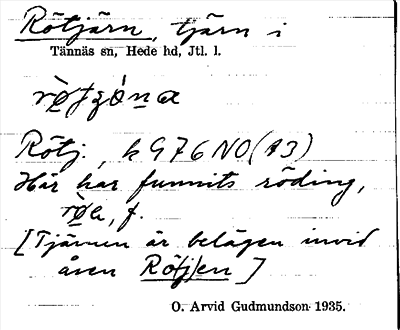 Rötjärn, tjärn i
Tännäs sn, Hede hd, Jtl. l.
Rötj., k 976 NO (13)
Här har funnits röding,
, f.
[Tjärnen är belägen invid
åsen Rö(tj)en]
O. Arvid Gudmundson 1935.